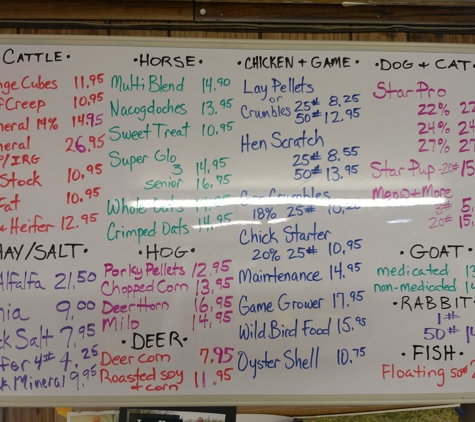 CATTLE
nge Cubes 11.95
Creep 10.95
neral 14% 14.95
neral 26.95
/IRG
Stock 10.95
Fat 10.95
& Heifer 12.95
HAY/SALT
Alfalfa 21.50
9.00
Salt 7.95
4# 4.25
Mineral 9.95
• HORSE •
Multi Blend 14.90
Nacogdoches 13.95
Sweet Treat 10.95
Super Glo
3 14.95
Senior 16.95
Whole Oats
Crimped Oats 14.95
• HOG •
Porky Pellets 12.95
Chopped Corn 13.95
Deer Horn 16.95
Milo 14.95
• DEER •
Deer corn 7.95
Roasted soy
& corn 11.95
• CHICKEN + GAME •
Lay Pellets
or
Crumbles 25# 8.25
50# 12.95
Hen Scratch
25# 8.55
50# 13.95
Crumbles
18% 25#
Chick Starter
20% 25# 10.95
Maintenance 14.95
Game Grower 17.95
Wild Bird Food 15.95
Oyster Shell 10.75
• DOG + CAT
Star Pro
22% 22
24% 24
27% 27
Star Pup 20# 15
Meow + More
5
20# 15
• GOAT
medicated
non-medicated
• RABBIT
1#
50# 14
• FISH •
Floating 50#